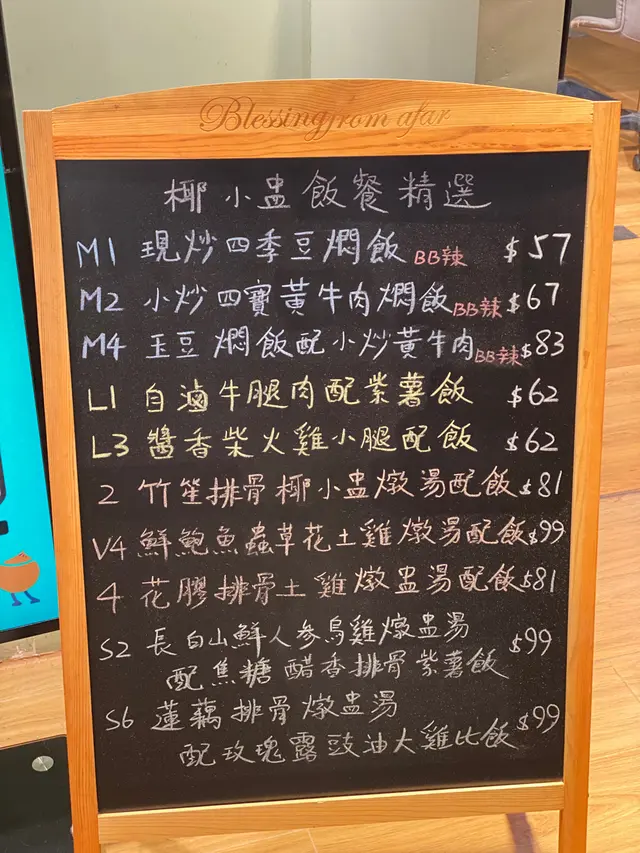 Blessing from afar
椰小盅飯餐精選
M1 現炒四季豆燜飯 BB辣 $57
M2 小炒四寶黃牛肉燜飯 BB辣 $67
M4 玉豆燜飯配小炒黃牛肉 BB辣 $83
L1 自滷牛腿肉配紫薯飯 $62
L3 醬香柴火雞小腿配飯 $62
2 竹笙排骨椰小盅燉湯配飯 $81
V4 鮮鮑魚蟲草花土雞燉湯配飯 $99
4 花膠排骨土雞燉盅湯配飯 $81
S2 長白山鮮人參烏雞燉盅湯 $99
配焦糖醋香排骨紫薯飯
S6 蓮藕排骨燉盅湯 $99
配玫瑰露豉油大雞比飯